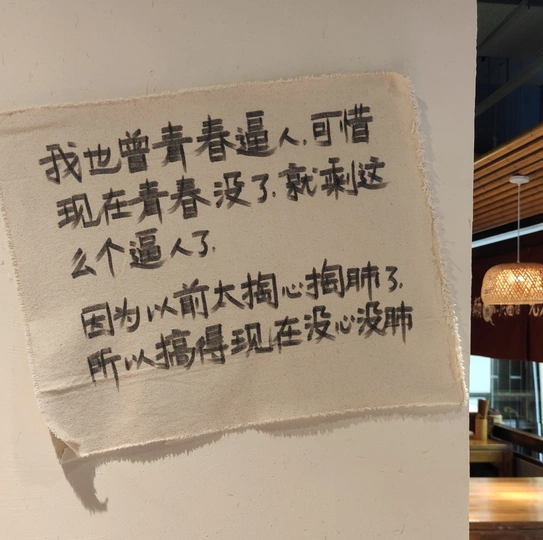 我也曾青春逼人,可惜
现在青春没了.就剩这
么个逼人了.
因为以前太掏心掏肺了.
所以搞得现在没心没肺